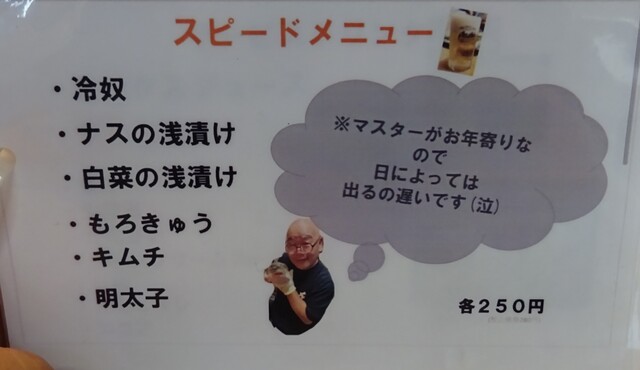 スピードメニュー
・冷奴
・ナスの浅漬け
・白菜の浅漬け
・もろきゅう
・キムチ
・明太子
※マスターがお年寄りな
ので
日によっては
出るの遅いです(泣)
各250円